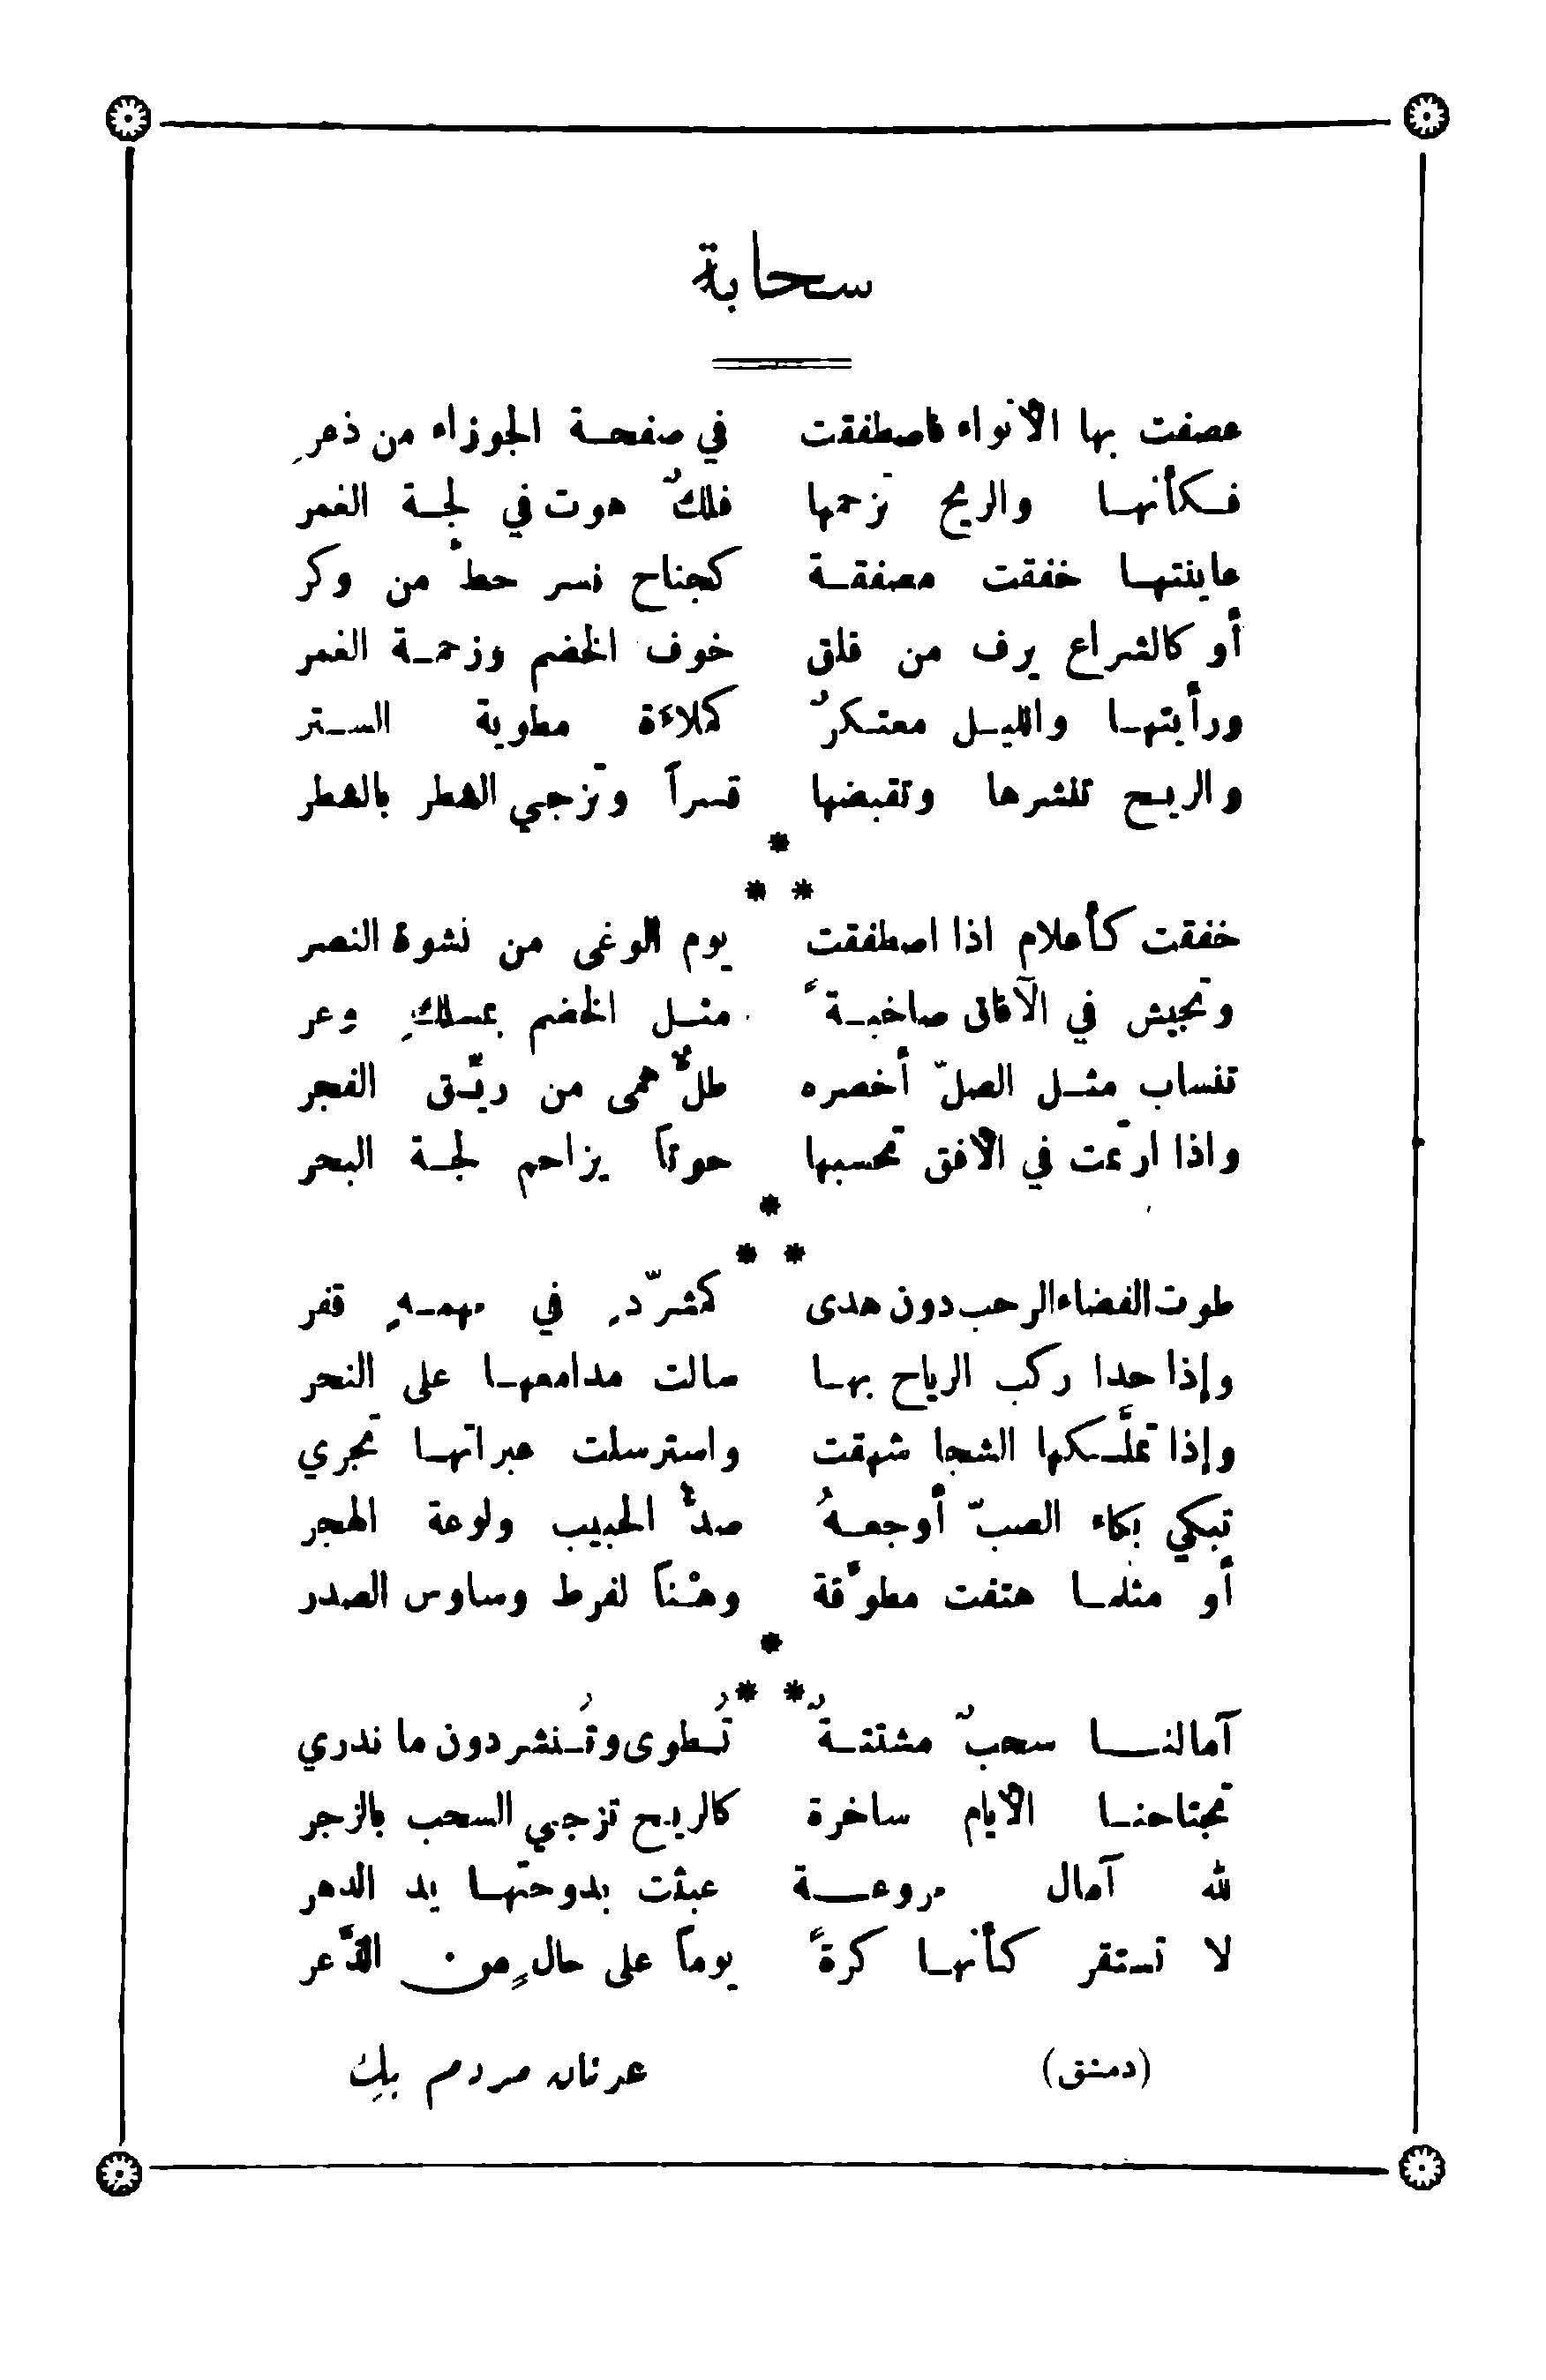 سحابة
عصفت بها الأنواء فاصطفقت في صفحة الجوزاء من ذعرِ
فكأنها والريح تزحمها فلكٌ هوت في لجة الغمر
عاينتها خفقت مصفقة كجناح نسر حطَّ من وكر
أو كالشراع يرف من قلق خوف الخضم وزحمة الغمر
ورأيتها والليل معتكرٌ كملاءة مطوية الستر
والريح تنشرها وتقبضها قسراً وتزجي الشطر بالشطر
*
* *
خفقت كأعلام اذا اصطفقت يوم الوغى من نشوة النصر
وتجيش في الآفاق صاخبةً مثل الخضم بمسلكٍ وعر
تنساب مثل الصلّ أخصره طلٌّ همى من ريّق الفجر
واذا ارتمت في الأفق تحسبها حوتاً يزاحم لجة البحر
*
* *
طوت الفضاء الرحب دون هدى كمشرّدٍ في مهمهٍ قفر
وإذا حدا ركب الرياح بها سالت مدامعها على النحر
وإذا تملَّكها الشجا شهقت واسترسلت عبراتها تجري
تبكي بكاء الصبّ أوجعهُ صدُّ الحبيب ولوعة الهجر
أو مثلما هتفت مطوَّقة وهْناً لفرط وساوس الصدر
*
* *
آمالنا سحبٌ مشتتةٌ تُطوى وتُنشر دون ما ندري
تجتاحنا الأيام ساخرة كالريح تزجي السحب بالزجر
لله آمال مروعة عبثت بدوحتها يد الدهر
لا تستقر كأنها كرةً يوماً على حالٍ من الذُّعر
(دمشق) عدنان مردم بك